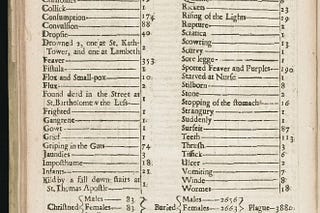 Collick 1
Consumption 174
Convulsion 88
Dropsie 40
Drowned 2, one at St. Kath-
Tower, and one at Lambeth 2
Feaver 353
Fistula 1
Flox and Small-pox 10
Flux 2
Found dead in the Street at
St. Bartholomew the Less 1
Frighted 1
Gangrene 1
Gowt 1
Grief 1
Griping in the Guts 74
Jaundies 3
Imposthume 18
Infants 21
Kild by a fall down stairs at
St. Thomas Apostle 1
Rickets 23
Rising of the Lights
Rupture
Sciatica
Scowring 13
Scurvy
Sore legge
Spotted Feaver and Purples 190
Starved at Nurse
Stilborn 8
Stone 2
Stopping of the stomach 16
Strangury 1
Suddenly 1
Surfeit 87
Teeth 113
Thrush 3
Tissick 6
Ulcer 2
Vomiting 7
Winde 8
Wormes 18
Christned Males 83 Females 83 Buried Males 2656 Females 2663 Plague 3880